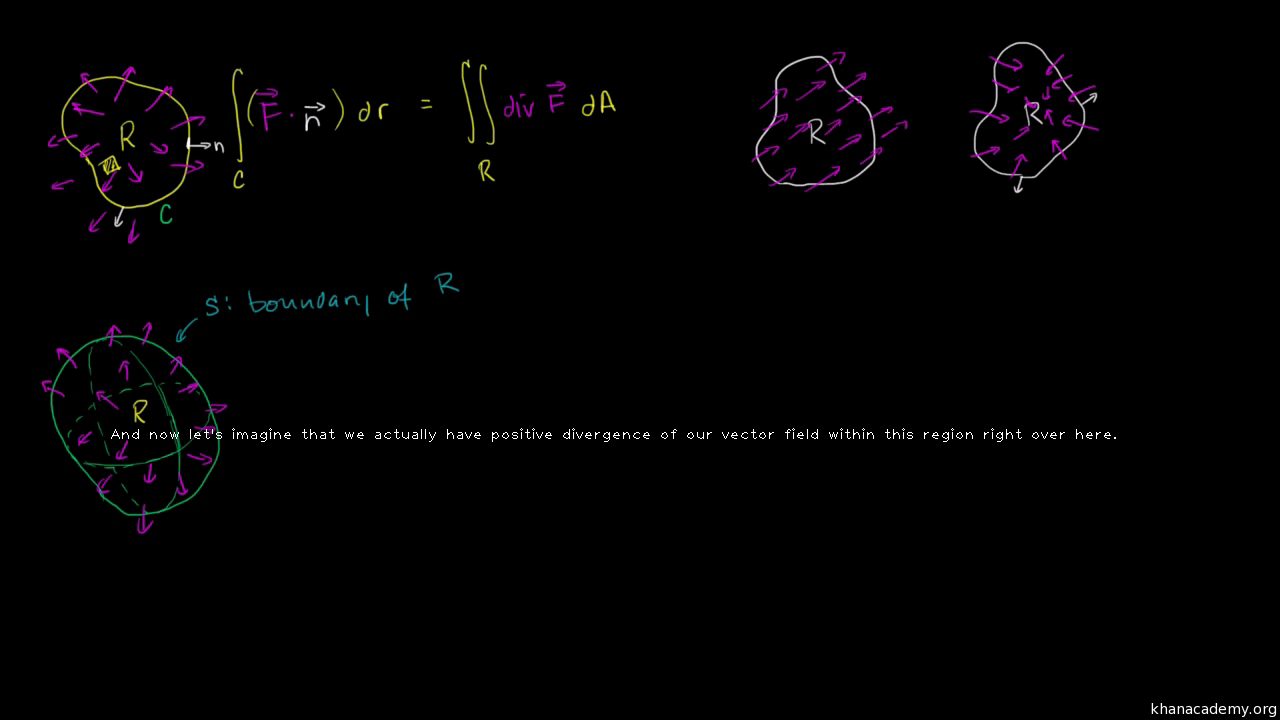 R
n
C
∫_C (F⃗ · n⃗) dr = ∬_R div F⃗ dA
R
R
S: boundary of R
R
And now let's imagine that we actually have positive divergence of our vector field within this region right over here.
khanacademy.org